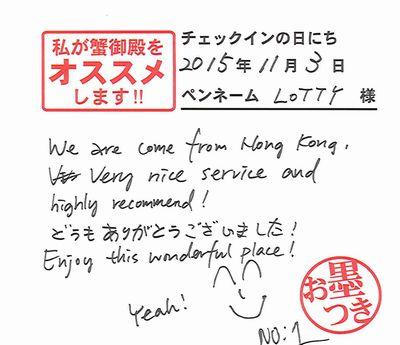 私が蟹御殿を
オススメ
します!!
チェックインの日にち
2015年11月3日
ペンネーム LOTTY 様
We are come from Hong Kong.
Very nice service and
highly recommend!
どうもありがとうございました!
Enjoy this wonderful place!
Yeah!
NO:1
お墨つき